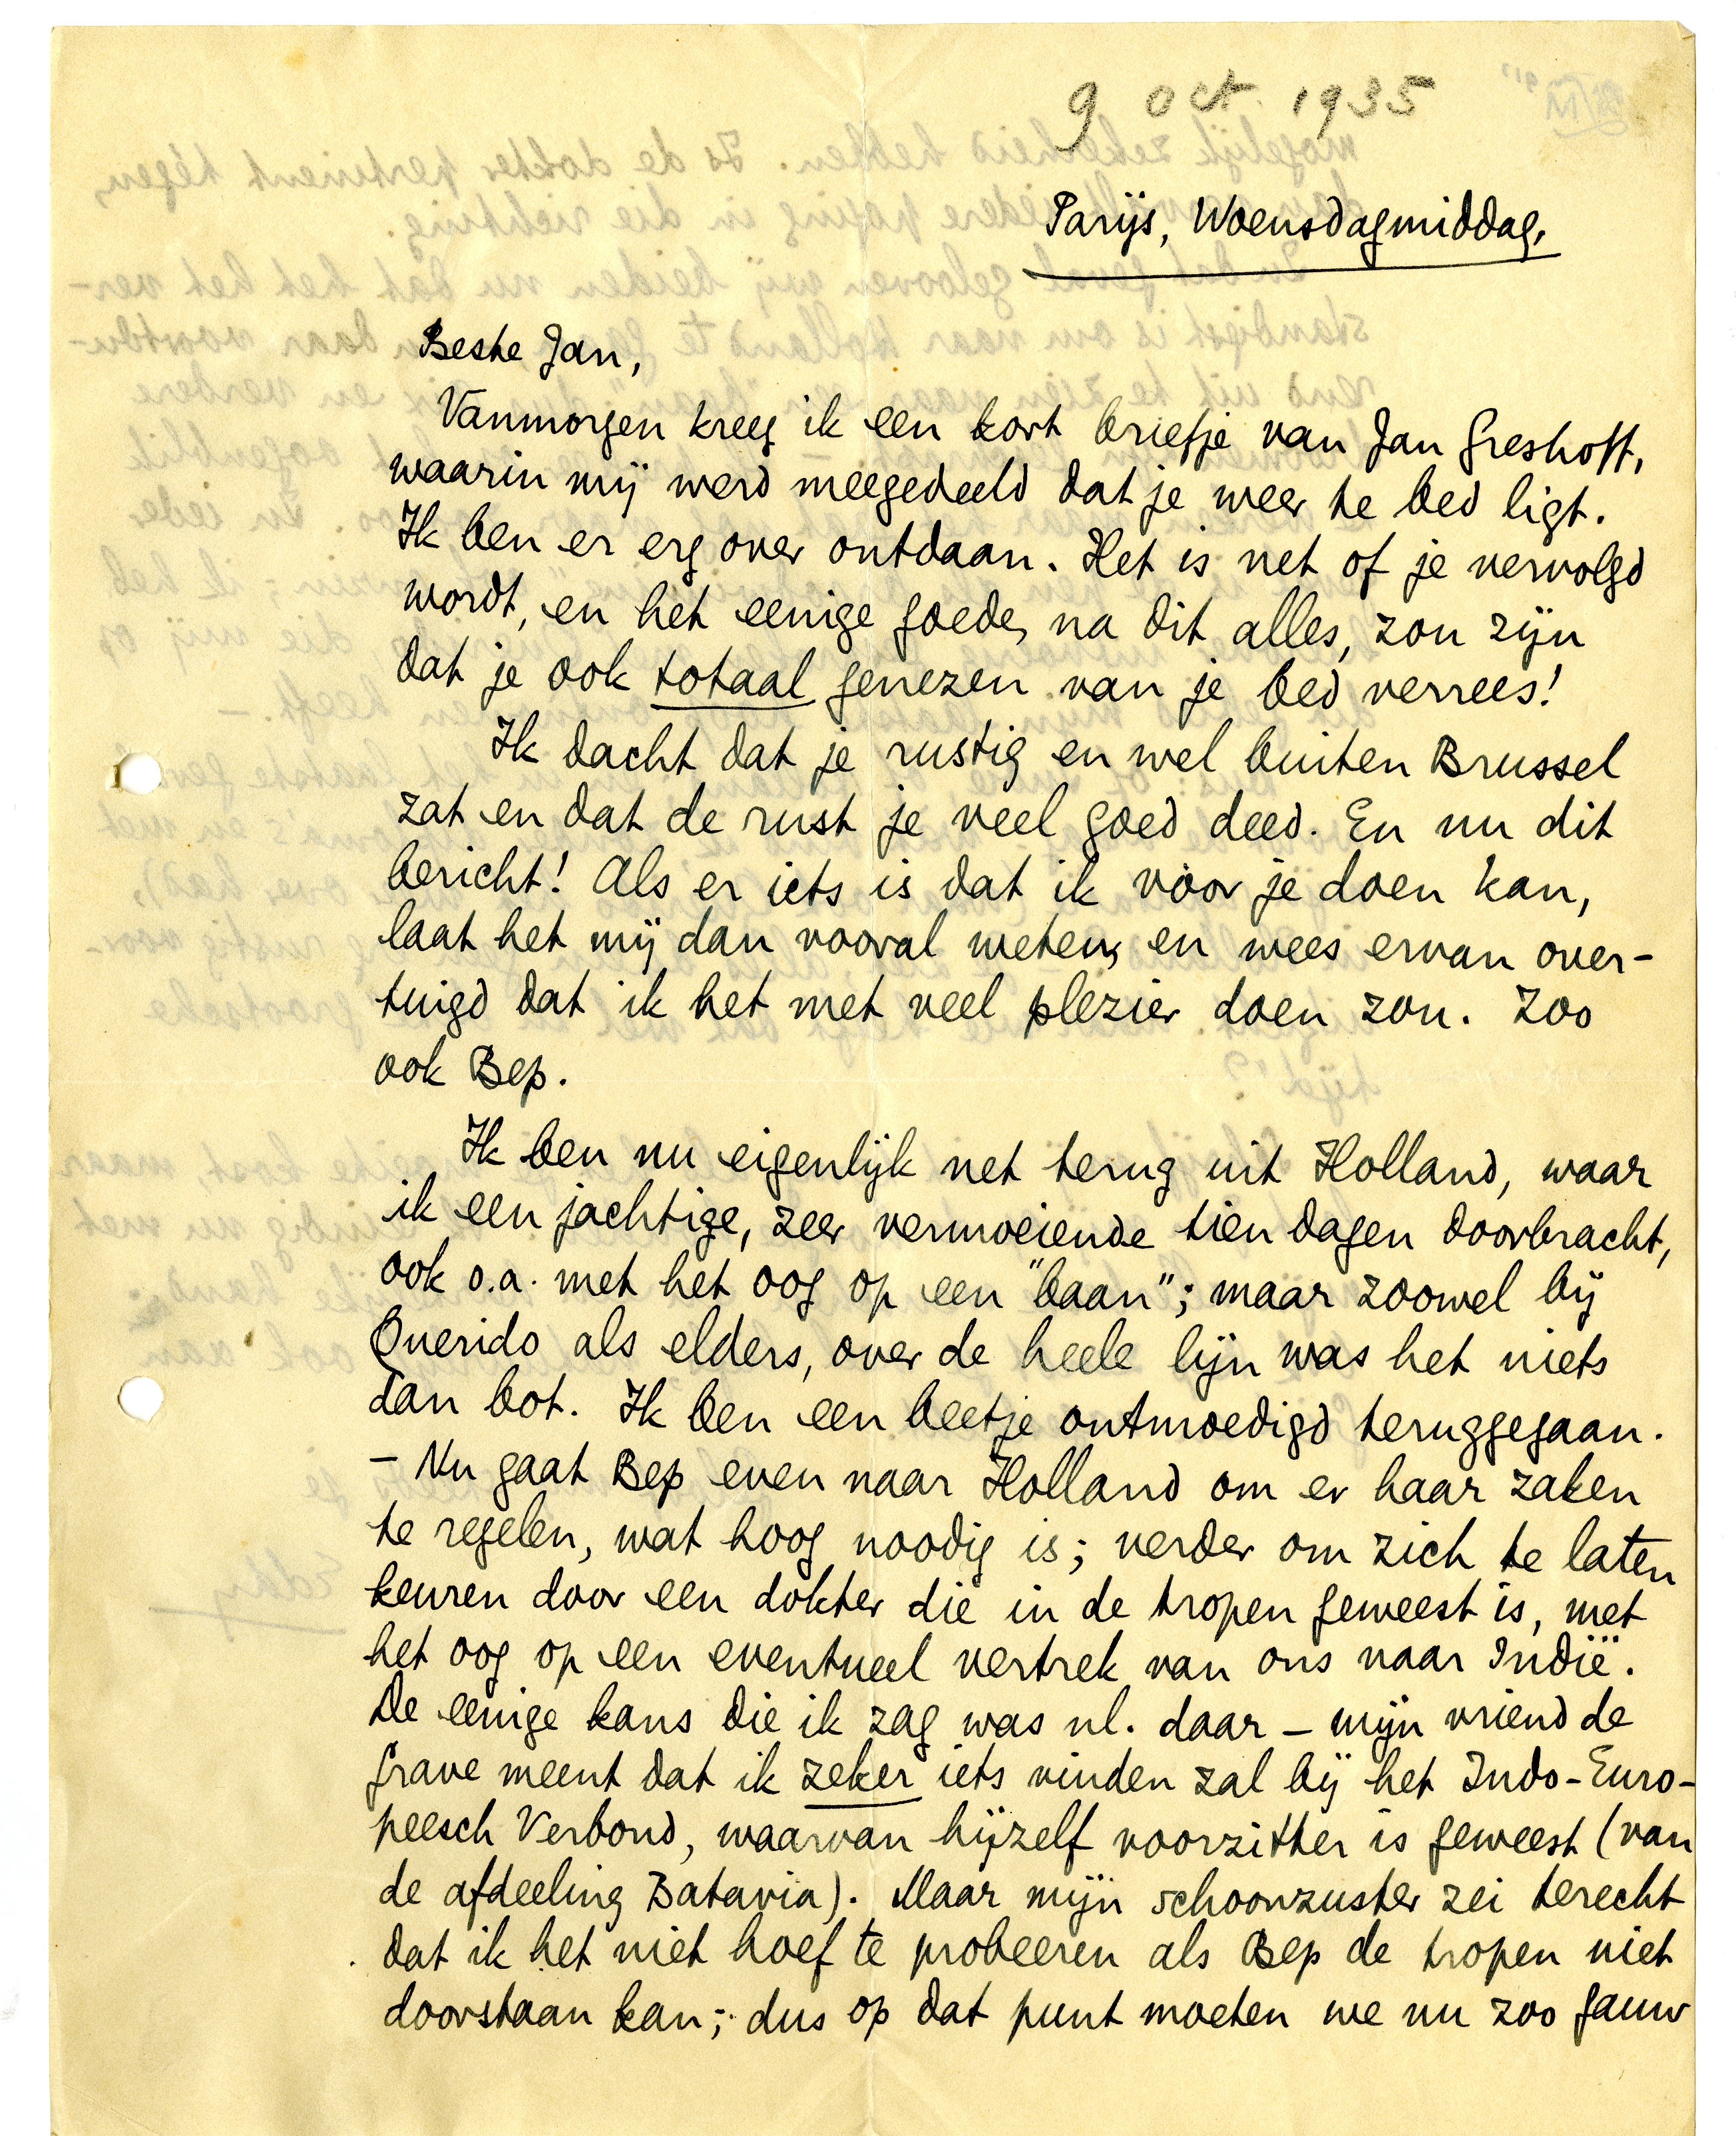 9 oct. 1935
Parijs, Woensdagmiddag.
Beste Jan,
Vanmorgen kreeg ik een kort briefje van Jan Greshoff,
waarin mij werd meegedeeld dat je weer te bed ligt.
Ik ben er erg over ontdaan. Het is net of je vervolgd
wordt, en het eenige goede, na dit alles, zou zijn
dat je ook totaal genezen van je bed verrees!
Ik dacht dat je rustig en wel buiten Brussel
zat en dat de rust je veel goed deed. En nu dit
bericht! Als er iets is dat ik voor je doen kan,
laat het mij dan vooral weten, en wees ervan over-
tuigd dat ik het met veel plezier doen zou. Zoo
ook Bep.
Ik ben nu eigenlijk net terug uit Holland, waar
ik een jachtige, zeer vermoeiende tien dagen doorbracht,
ook o.a. met het oog op een "baan"; maar zoowel bij
Querido als elders, over de heele lijn was het niets
dan bot. Ik ben een beetje ontmoedigd teruggegaan.
- Nu gaat Bep even naar Holland om er haar zaken
te regelen, wat hoog noodig is; verder om zich te laten
keuren door een dokter die in de tropen geweest is, met
het oog op een eventueel vertrek van ons naar Indië.
De eenige kans die ik zag was nl. daar - mijn vriend de
Grave meent dat ik zeker iets vinden zal bij het Indo-Euro-
peesch Verbond, waarvan hijzelf voorzitter is geweest (van
de afdeeling Batavia). Maar mijn schoonzuster zei terecht
dat ik het niet hoef te probeeren als Bep de tropen niet
doorstaan kan; dus op dat punt moeten we nu zoo gauw